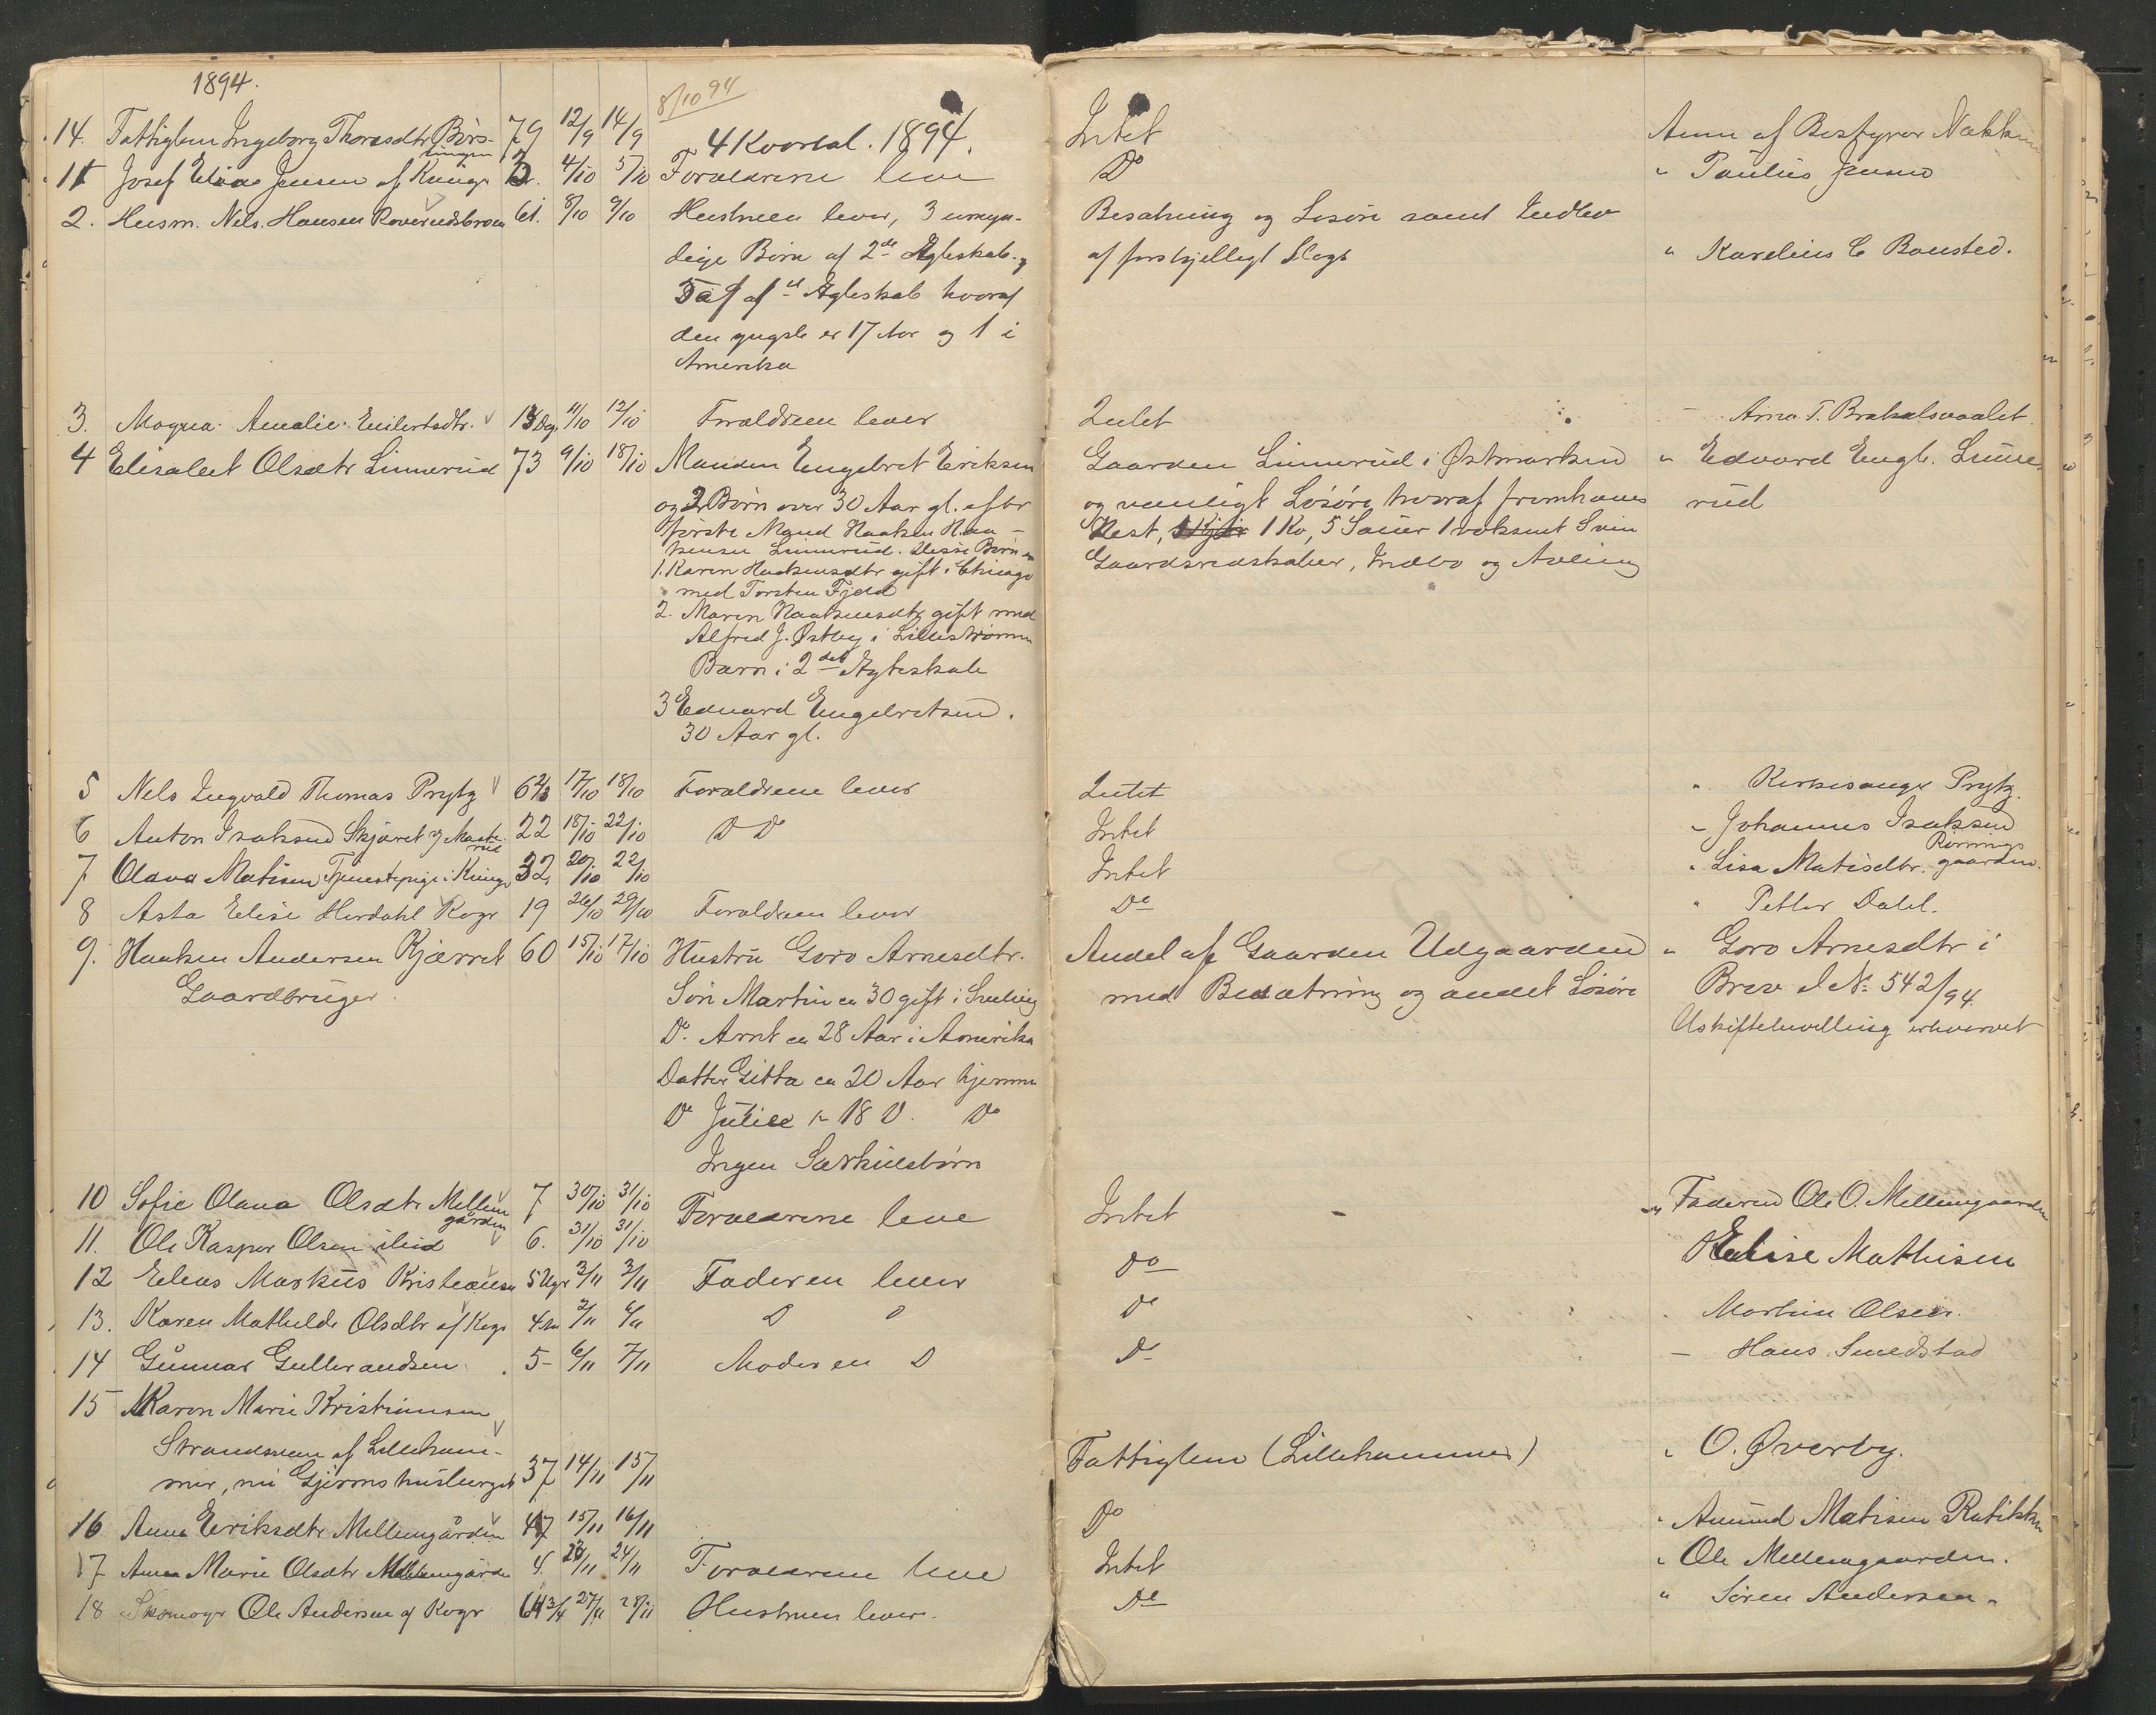 1894.
8/10 94
14. Fattiglem Ingeborg Thoresdtr Børs- 79 12/9 14/9 Intet Anm af Bestyrer Nøkken
lingen
4 Kvartal. 1894.
1 Josef Elias Jensen af Kongs 4/10 5/10 Forældrene leve Do " Paulus Jensen
2. Husm. Nels. Hansen Roverudsbroen 61. 8/10 9/10 Hustruen lever, 3 umyn- Besætning og Løsøre samt Indbo
dige Børn af 2det Ægteskab og af forskjelligt Slags " Karelius C Bousted.
5 af Ægteskab hvoraf
den yngste er 17 Aar og 1 i
Amerika
3. Magna Amalie Eilertsdtr. 13 Dg. 11/10 12/10 Forældrene lever Intet - Arne T. Brakalsvaalet.
4 Elisabet Olsdtr Linnerud 73 9/10 18/10 Manden Engebret Eriksen Gaarden Linnerud i Østmarken " Edvard Engb. Linne-
og 2 Børn over 30 Aar gl. efter og vanligt Løsøre hvoraf fremhæves rud
første Mand Haaken Haa- Hest, 1 Ko, 5 Sauer 1 voksent Svin
kensen Linnerud. Disse Børn er Gaardsredskaber, Indbo og Avling
1. Karen Haakensdtr gift i Chicago
med Torsten Fjeld
2. Maren Haakensdtr gift med
Alfred J. Østby i Lillestrømmen
Barn i 2det Ægteskab
3 Edvard Engebretsen.
30 Aar gl.
5 Nels Ingvald Thomas Prytz 6 17/10 18/10 Forældrene lever Intet " Kirkesanger Prytz.
6 Anton Isaksen Skjæret 22 18/10 22/10 D D Intet " Johannes Isaksen
7 Olava Matisen Tjenestepige i Kongs 32 20/10 22/10 Intet " Lisa Matisdtr. Rønnings gaarden.
8 Asta Elise Hordahl Kogr 19 26/10 29/10 Forældrene lever Do " Petter Dahl.
9. Haaken Andersen Kjærret 60 15/10 17/10 Hustru Goro Arnesdtr. Andel af Gaarden Udgaarden " Goro Arnesdtr i
Gaardbruger. Søn Martin ca 30 gift i med Besætning og andet Løsøre Brev J No 542/94.
Do. Arnt ca 28 Aar i Amerika Uskiftebevilling erhvervet
Datter Gitta ca 20 Aar hjemme
Do Julie 18 D. Do
Ingen Særkuldsbørn
10 Sofie Olava Olsdtr Mellem 7 30/10 31/10 Forældrene leve Intet - " Faderen Ole O. Mellemgaarden
gården
11. Ole Kasper Olsen ibid 6. 31/10 31/10
12 Elias Markus Kristiansen 5 Ugr 2/11 3/11 Faderen lever Do Elise Mathisen
13. Karen Mathilde Olsdtr af Kogr 4 2/11 6/11 D D Do Martin Olsen.
14 Gunnar Gulbrandsen. 5- 6/11 7/11 Moderen D Do - Hans Smedstad
15 Karen Marie Kristiansen
Strandveien af Lilleham-
mer, nu Gjermshusberget 37 14/11 15/11 Fattiglem (Lillehammer) " O. Øverby.
16 Anne Eriksdtr Mellemgården 47 15/11 16/11 Do " Amund Matisen
17 Anne Marie Olsdtr Mellemgården 4. 23/11 24/11 Forældrene leve Intet " Ole Mellemgaarden.
18 Skomager Ole Andersen af Kogr 64 3/4 27/11 28/11 Hustruen lever. Do " Søren Andersen.